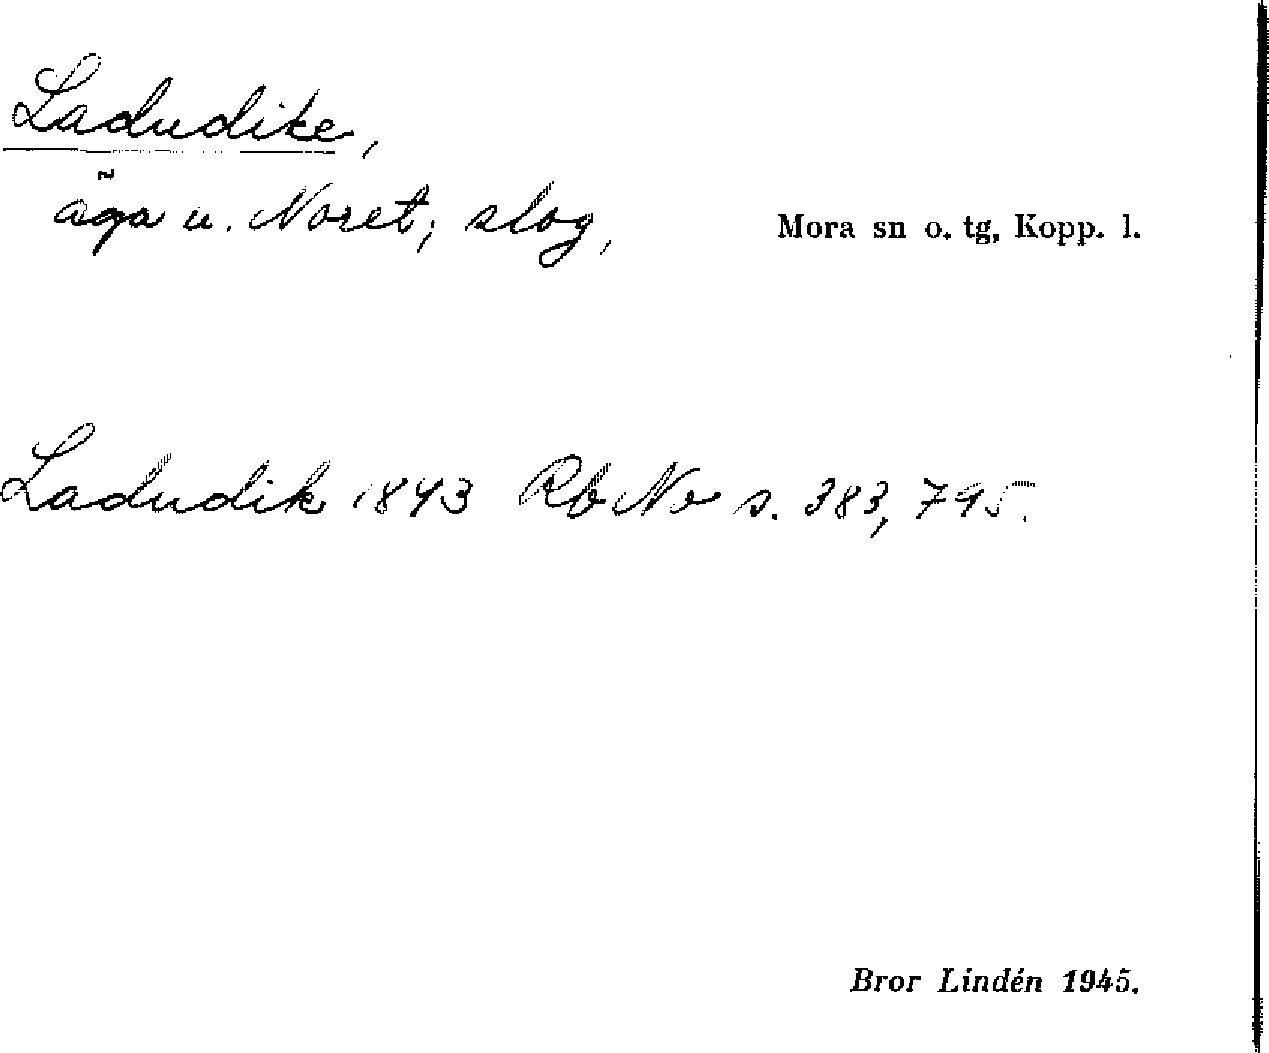 Ladudike,
äga u. Noret; slog,
Mora sn o. tg, Kopp. l.
Ladudik 1843 Rb No s. 383, 795.
Bror Lindén 1945.